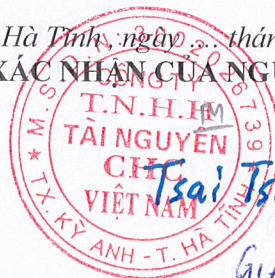 Hà Tĩnh, ngày .... thán
XÁC NHẬN CỦA NGƯ
CÔNG TY
T.N.H.H
TÀI NGUYÊN
CHC
VIỆT NAM
TX. KỲ ANH - T. HÀ TĨNH
Tsai Ts